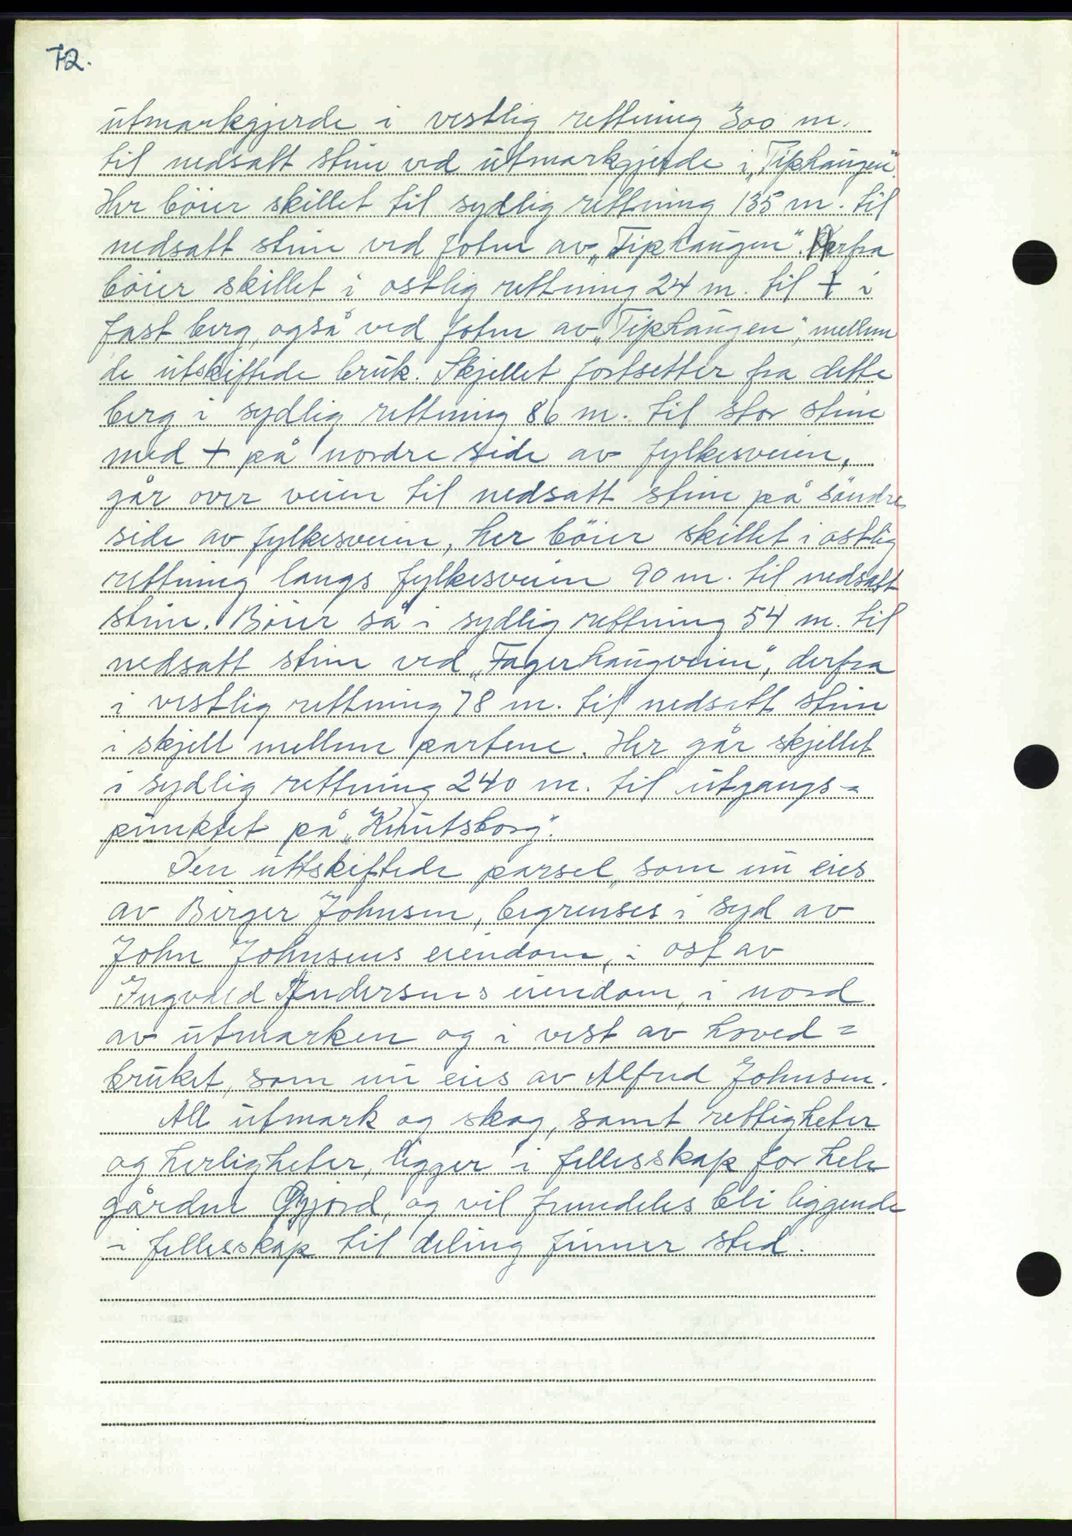 72.
utmarkgjerde i vestlig rettning 300 m.
til nedsatt sten ved utmarkgjerde i „Tiphaugen".
Her böier skillet til sydlig rettning 135 m. til
nedsatt sten ved foten av „Tiphaugen". Derfra
böier skillet i östlig rettning 24 m. til + i
fast berg, også ved foten av „Tiphaugen", mellem
de utskiftede bruk. Skjellet fortsetter fra dette
berg i sydlig rettning 86 m. til stor sten
med + på nordre side av fylkesveien,
går over veien til nedsatt sten på söndre
side av fylkesveien, her böier skillet i östlig
rettning langs fylkesveien 90 m. til nedsatt
sten. Böier så i sydlig rettning 54 m. til
nedsatt sten ved „Fagerhaugveien", derfra
i vestlig rettning 78 m. til nedsatt sten
i skjell mellem partene. Her går skjellet
i sydlig rettning 240 m. til utgangs-
punktet på „Knutsborg".
Den uttskiftede parsel, som nu eies
av Birger Johnsen, begrenses i syd av
John Johnsens eiendom, i ost av
Ingvald Andersens eiendom, i nord
av utmarken og i vest av hoved=
bruket, som nu eies av Alfred Johnsen.
All utmark og skog, samt rettigheter
og herligheter, ligger i fellesskap for hele
gården Gjörd, og vil fremdeles bli liggende
i fellesskap til deling finner sted.